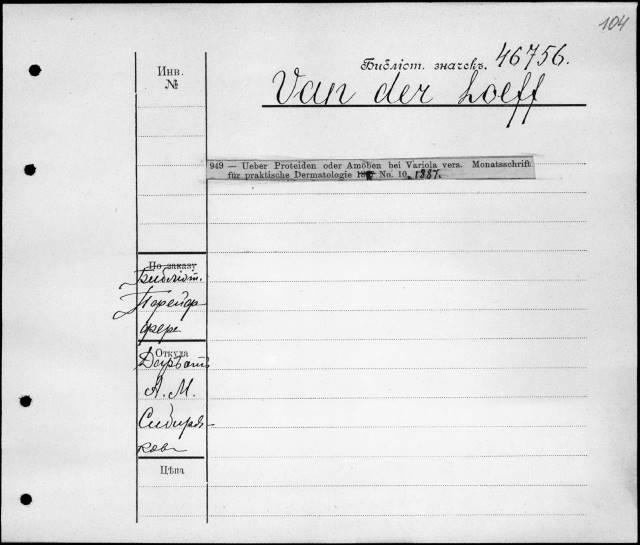 104
Библіот. значекъ. 46756.
Инв.
№
Van der Loeff
949 — Ueber Proteiden oder Amöben bei Variola vera. Monatsschrift
für praktische Dermatologie No. 10. 1887.
По заказу
Библіот.
Порейф-
фере
Откуда
Даръ отъ
А. М.
Сибиря-
кова
Цѣна